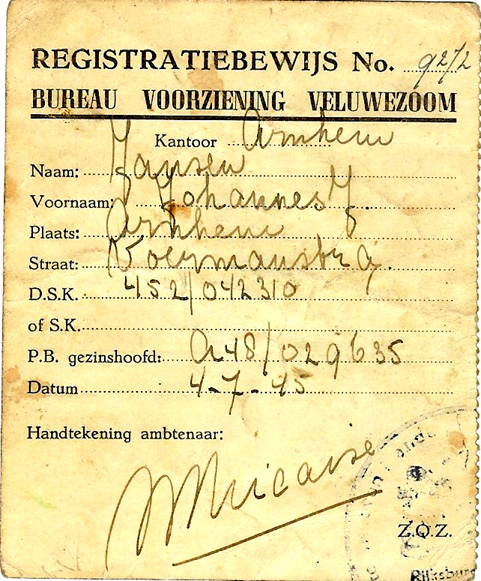 REGISTRATIEBEWIJS No. 92/2
BUREAU VOORZIENING VELUWEZOOM
Kantoor Arnhem
Naam: Jansen
Voornaam: Johannes J.
Plaats: Arnhem
Straat:
D.S.K. 452/042310
of S.K.
P.B. gezinshoofd: A48/029635
Datum 4-7-45
Handtekening ambtenaar:
Z.O.Z.